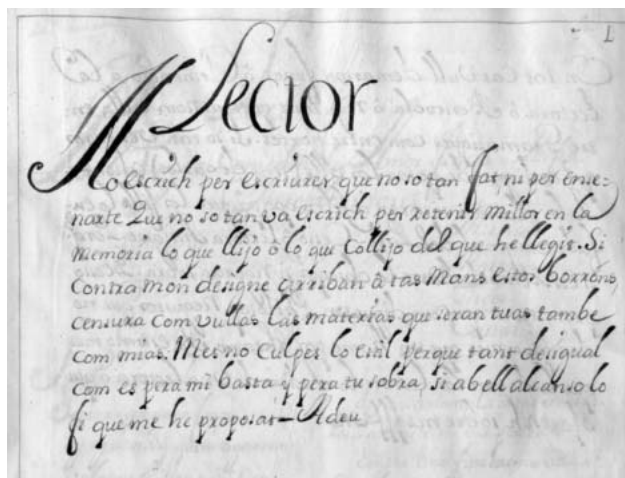 1
Al Lector
No Escrich per Escriurer que no so tan fat, ni per ense=
narte Que no so tan va Escrich per retenir Millor en la
Memoria lo que llijo ò lo que Collijo del que he llegit. Si
Contra mon designe arriban â tas Mans estos borrons,
censura com vullas las materias que seran tuas tambe
com mias. Mes no Culpes lo Estil perque tant desigual
com es pera mi basta y pera tu sobra, si ab ell alcanso lo
fi que me he proposat — Adeu